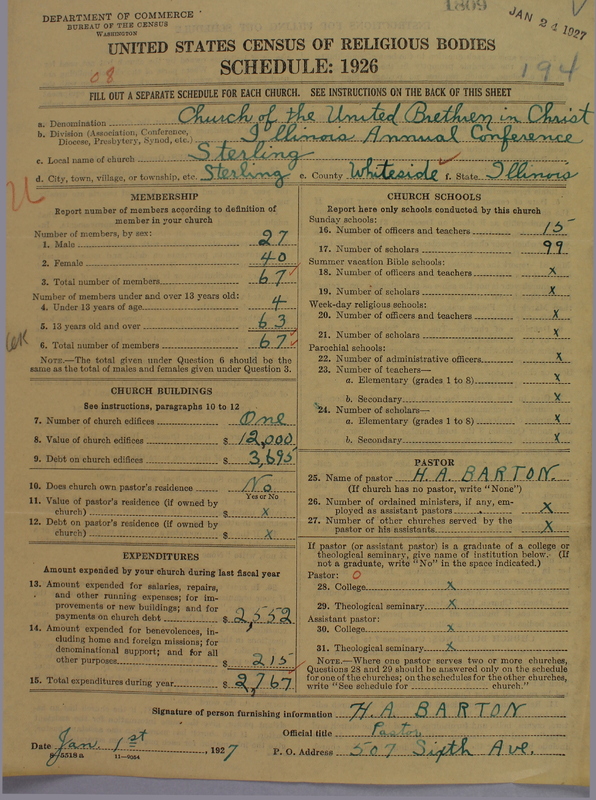 1809
JAN 24 1927
DEPARTMENT OF COMMERCE
BUREAU OF THE CENSUS
WASHINGTON
UNITED STATES CENSUS OF RELIGIOUS BODIES
SCHEDULE: 1926
08
194
FILL OUT A SEPARATE SCHEDULE FOR EACH CHURCH. SEE INSTRUCTIONS ON THE BACK OF THIS SHEET
a. Denomination Church of the United Brethren in Christ
b. Division (Association, Conference, Diocese, Presbytery, Synod, etc.) Illinois Annual Conference
c. Local name of church Sterling
d. City, town, village, or township, etc. Sterling e. County Whiteside f. State Illinois
MEMBERSHIP
Report number of members according to definition of
member in your church
Number of members, by sex:
1. Male 27
2. Female 40
3. Total number of members 67
Number of members under and over 13 years old:
4. Under 13 years of age 4
5. 13 years old and over 63
6. Total number of members 67
NOTE.—The total given under Question 6 should be the
same as the total of males and females given under Question 3.
CHURCH BUILDINGS
See instructions, paragraphs 10 to 12
7. Number of church edifices One
8. Value of church edifices $ 12,000
9. Debt on church edifices $ 3,695
10. Does church own pastor's residence No
Yes or No
11. Value of pastor's residence (if owned by
church) $ x
12. Debt on pastor's residence (if owned by
church) $ x
EXPENDITURES
Amount expended by your church during last fiscal year
13. Amount expended for salaries, repairs,
and other running expenses; for im-
provements or new buildings; and for
payments on church debt $ 2,552
14. Amount expended for benevolences, in-
cluding home and foreign missions; for
denominational support; and for all
other purposes $ 215
15. Total expenditures during year $ 2,767
CHURCH SCHOOLS
Report here only schools conducted by this church
Sunday schools:
16. Number of officers and teachers 15
17. Number of scholars 99
Summer vacation Bible schools:
18. Number of officers and teachers x
19. Number of scholars x
Week-day religious schools:
20. Number of officers and teachers x
21. Number of scholars x
Parochial schools:
22. Number of administrative officers x
23. Number of teachers—
a. Elementary (grades 1 to 8) x
b. Secondary x
24. Number of scholars—
a. Elementary (grades 1 to 8) x
b. Secondary x
PASTOR
25. Name of pastor H. A. BARTON.
(If church has no pastor, write "None")
26. Number of ordained ministers, if any, em-
ployed as assistant pastors x
27. Number of other churches served by the
pastor or his assistants x
If pastor (or assistant pastor) is a graduate of a college or
theological seminary, give name of institution below. (If
not a graduate, write "No" in the space indicated.)
Pastor: 0
28. College x
29. Theological seminary x
Assistant pastor:
30. College x
31. Theological seminary x
NOTE.—Where one pastor serves two or more churches,
Questions 28 and 29 should be answered only on the schedule
for one of the churches; on the schedules for the other churches,
write "See schedule for church."
Signature of person furnishing information H. A. BARTON
Official title Pastor
Date Jan. 1st, 1927 P. O. Address 507 Sixth Ave.
11—9064